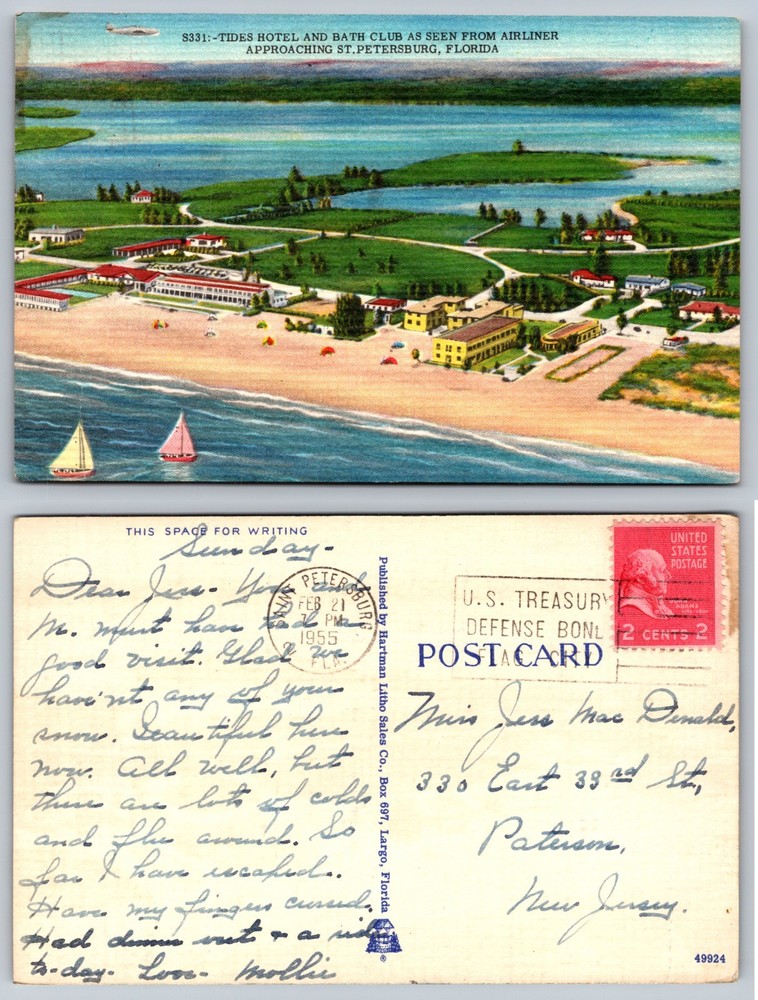 S331:-TIDES HOTEL AND BATH CLUB AS SEEN FROM AIRLINER
APPROACHING ST. PETERSBURG, FLORIDA
THIS SPACE FOR WRITING
Sunday-
Dear Jess- You and
M. must have had a
good visit. Glad we
haven't any of your
snow. Beautiful here
now. All well, but
there are lots of colds
and flu around. So
far I have escaped.
Have my fingers crossed.
Had dinner out & a ride
to-day. Love- Mollie
Published by Hartman Litho Sales Co., Box 697, Largo, Florida
SAINT PETERSBURG
FEB 21
PM
1955
FLA.
U.S. TREASURY
DEFENSE BON
POST CARD
UNITED
STATES
POSTAGE
ADAMS
2 CENTS 2
Miss Jess Mac Donald,
330 East 33rd St.,
Paterson,
New Jersey.
49924